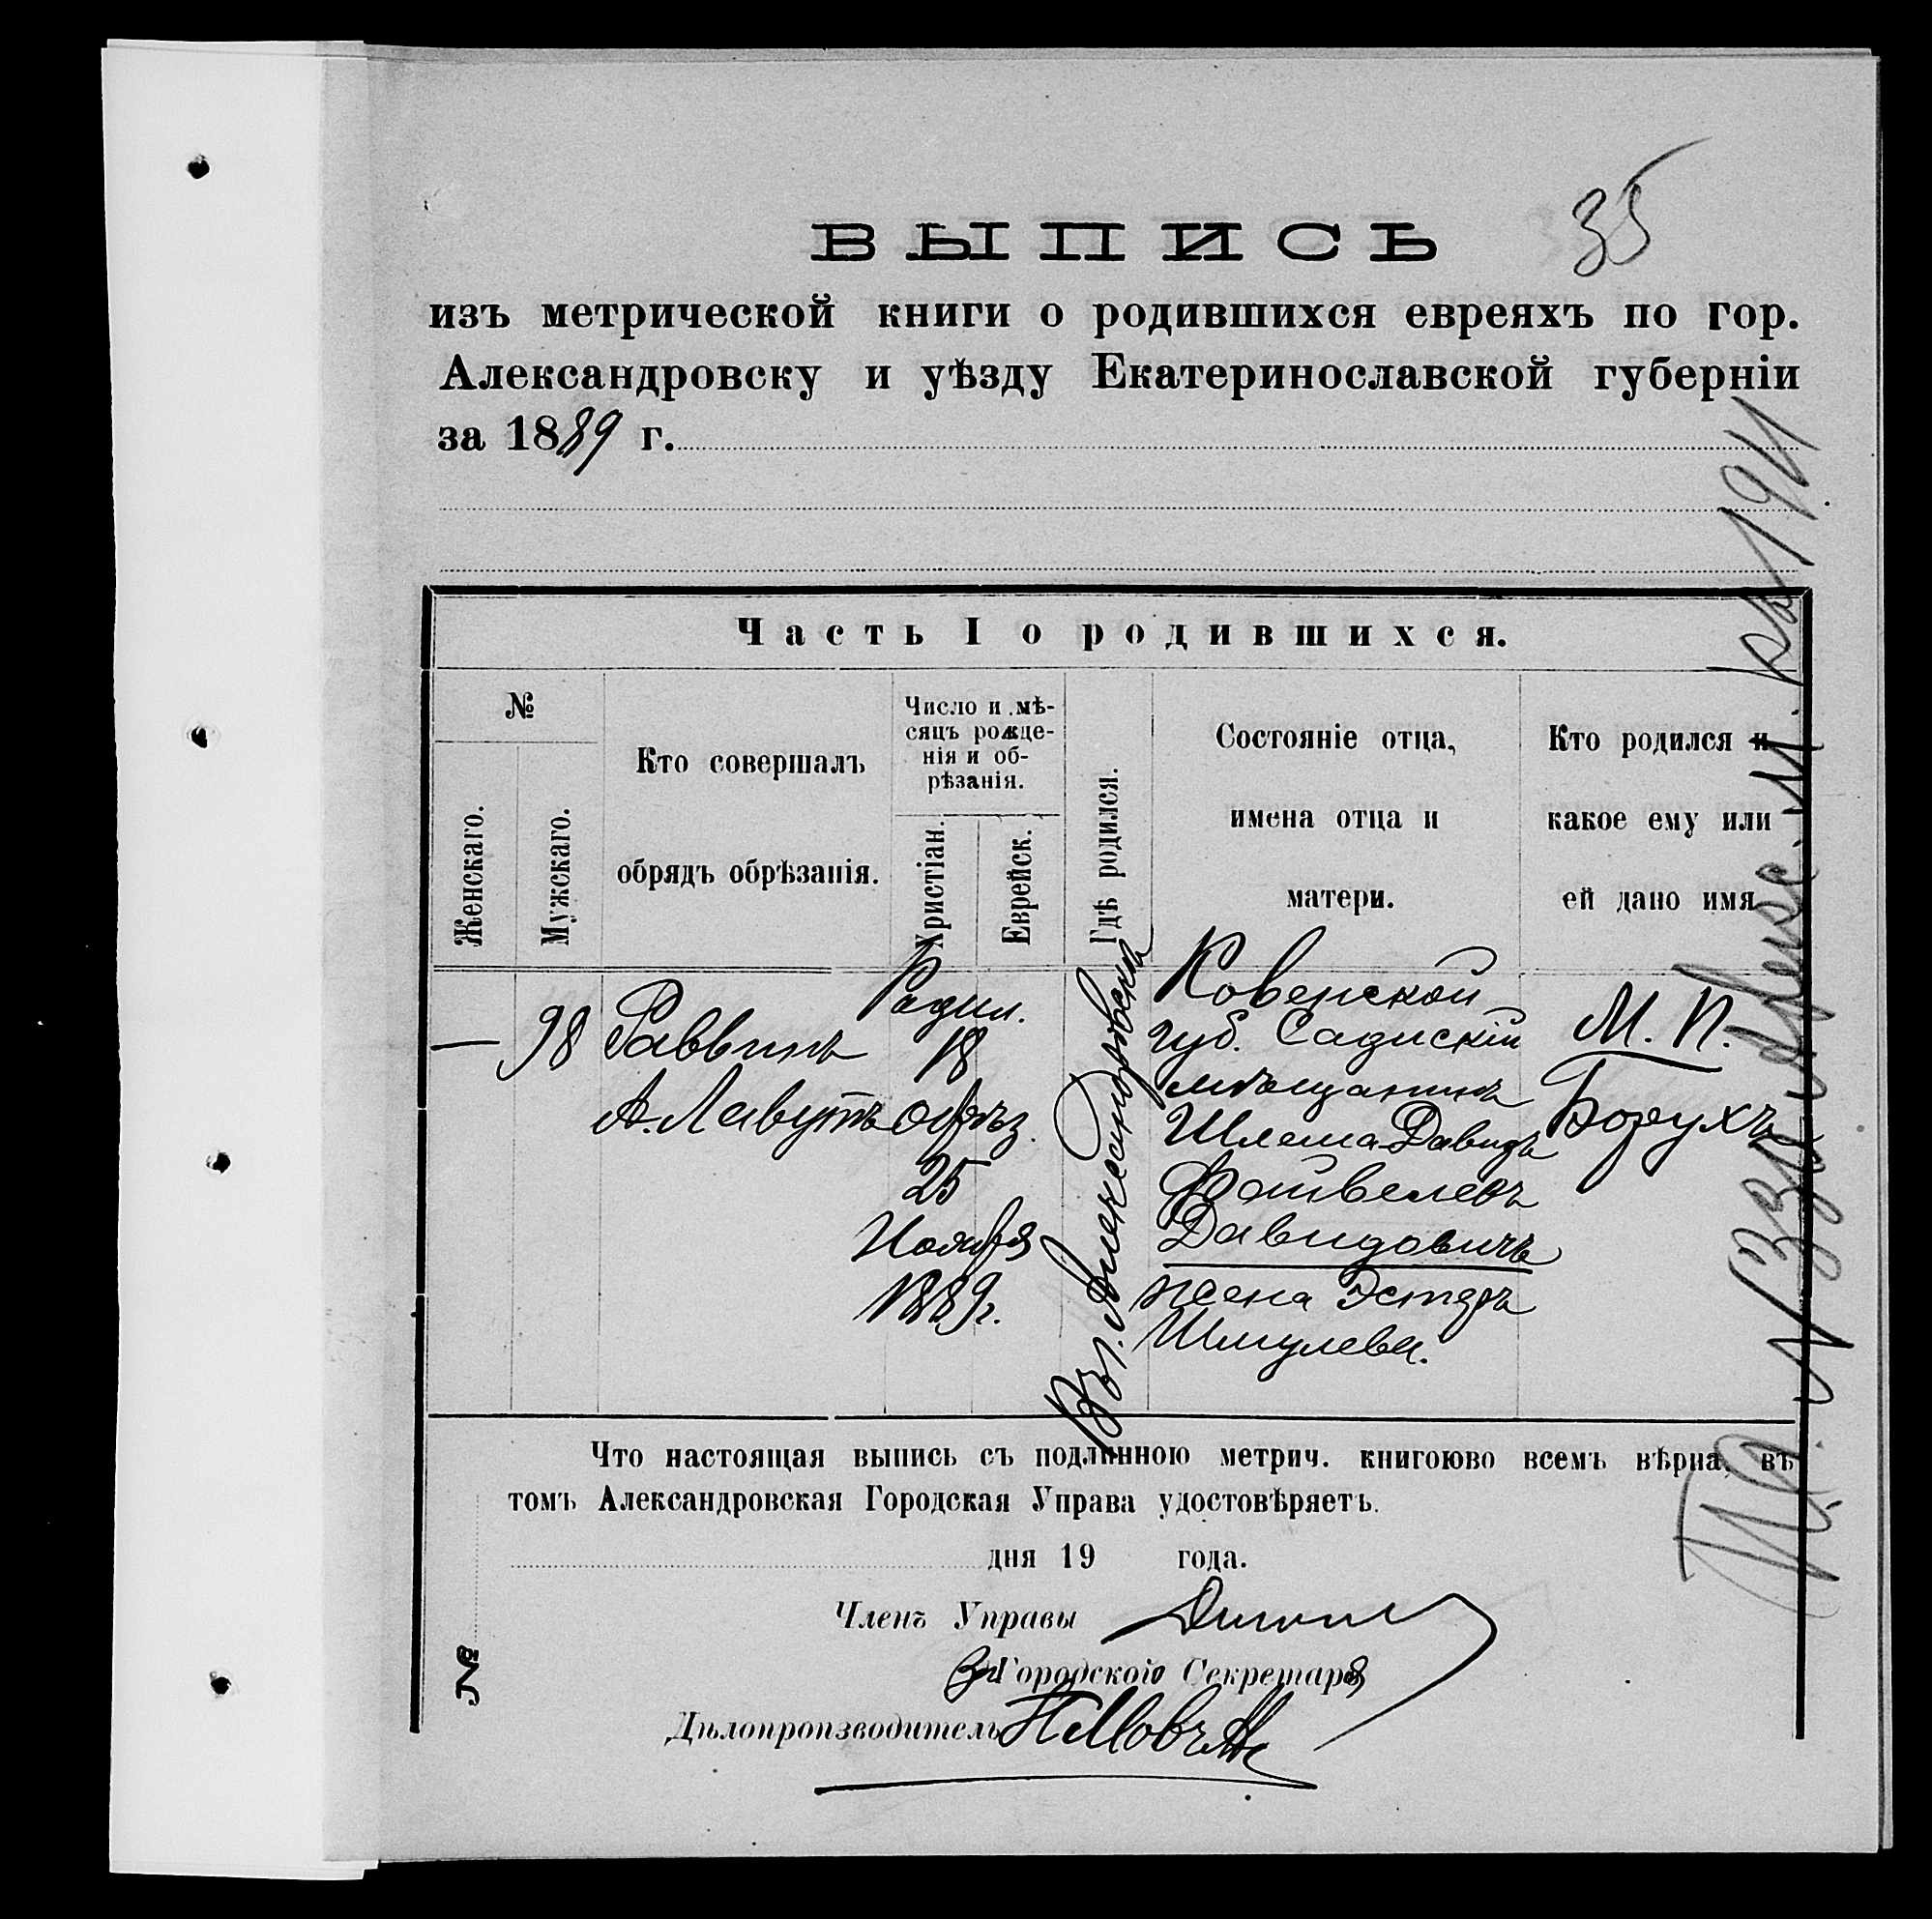 35
ВЫПИСЬ
изъ метрической книги о родившихся евреяхъ по гор.
Александровску и уѣзду Екатеринославской губерніи
за 1889 г.
Часть I о родившихся.
№
Женскаго.
Мужскаго.
Кто совершалъ
обрядъ обрѣзанія.
Число и мѣ-
сяцъ рожде-
нія и об-
рѣзанія.
Христіан.
Еврейск.
Гдѣ родился.
Состояніе отца,
имена отца и
матери.
Кто родился и
какое ему или
ей дано имя
—
98
Раввинъ
А. Лавутъ
Родил.
18
обрѣз.
25
Ноября
1889г.
Въ г. Александровскѣ
Ковенской
губ. Садискій
мѣщанинъ
Шлема-Давидъ
Файвелевъ
Давидовичъ
жена Эстеръ
Шмулева.
М. П.
Борухъ
Что настоящая выпись съ подлинною метрич. книгоюво всемъ вѣрна, въ
томъ Александровская Городская Управа удостовѣряетъ.
дня 19 года.
Членъ Управы
За Городского Секретаря
Дѣлопроизводитель
№